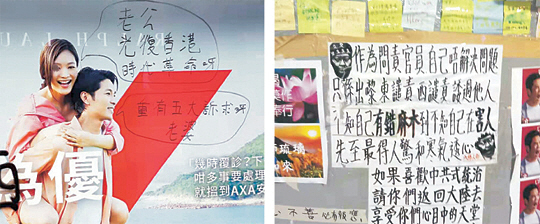 PH LAU
老公
光復香港
時代革命呀
重有五大訴求呀
老婆
為優
幾時覆診?下
咁多事要處理
就搵到AXA安
作為問責官員自己唔解決問題
只係出嚟東譴責西譴責諉過他人
不知自己有錯麻木到不知自己在害人
先至最得人驚和寒氣透心
如果喜歡中共式統治
請你們返回大陸去
享受你們心中的天堂